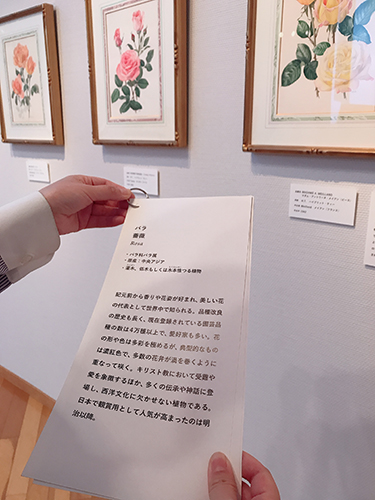 バラ
薔薇
Rosa
・バラ科バラ属
・原産：中央アジア
・灌木、低木もしくは木本性つる植物
紀元前から香りや花姿が好まれ、美しい花
の代表として世界中で知られる。品種改良
の歴史も長く、現在登録されている園芸品
種の数は4万種以上で、愛好家も多い。花
の形や色は多彩を極めるが、典型的なもの
は濃紅色で、多数の花弁が渦を巻くように
重なって咲く。キリスト教において受難や
愛を象徴するほか、多くの伝承や神話に登
場し、西洋文化に欠かせない植物である。
日本で観賞用として人気が高まったのは明
治以降。